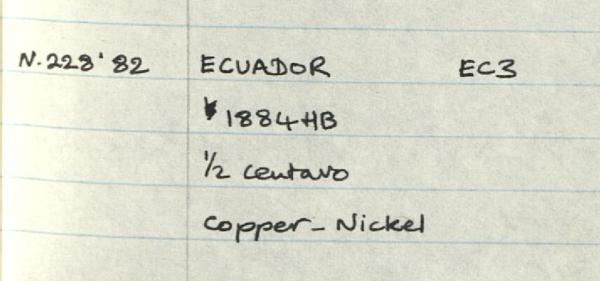 N.228'82 ECUADOR EC3
1884 HB
1/2 centavo
Copper-Nickel